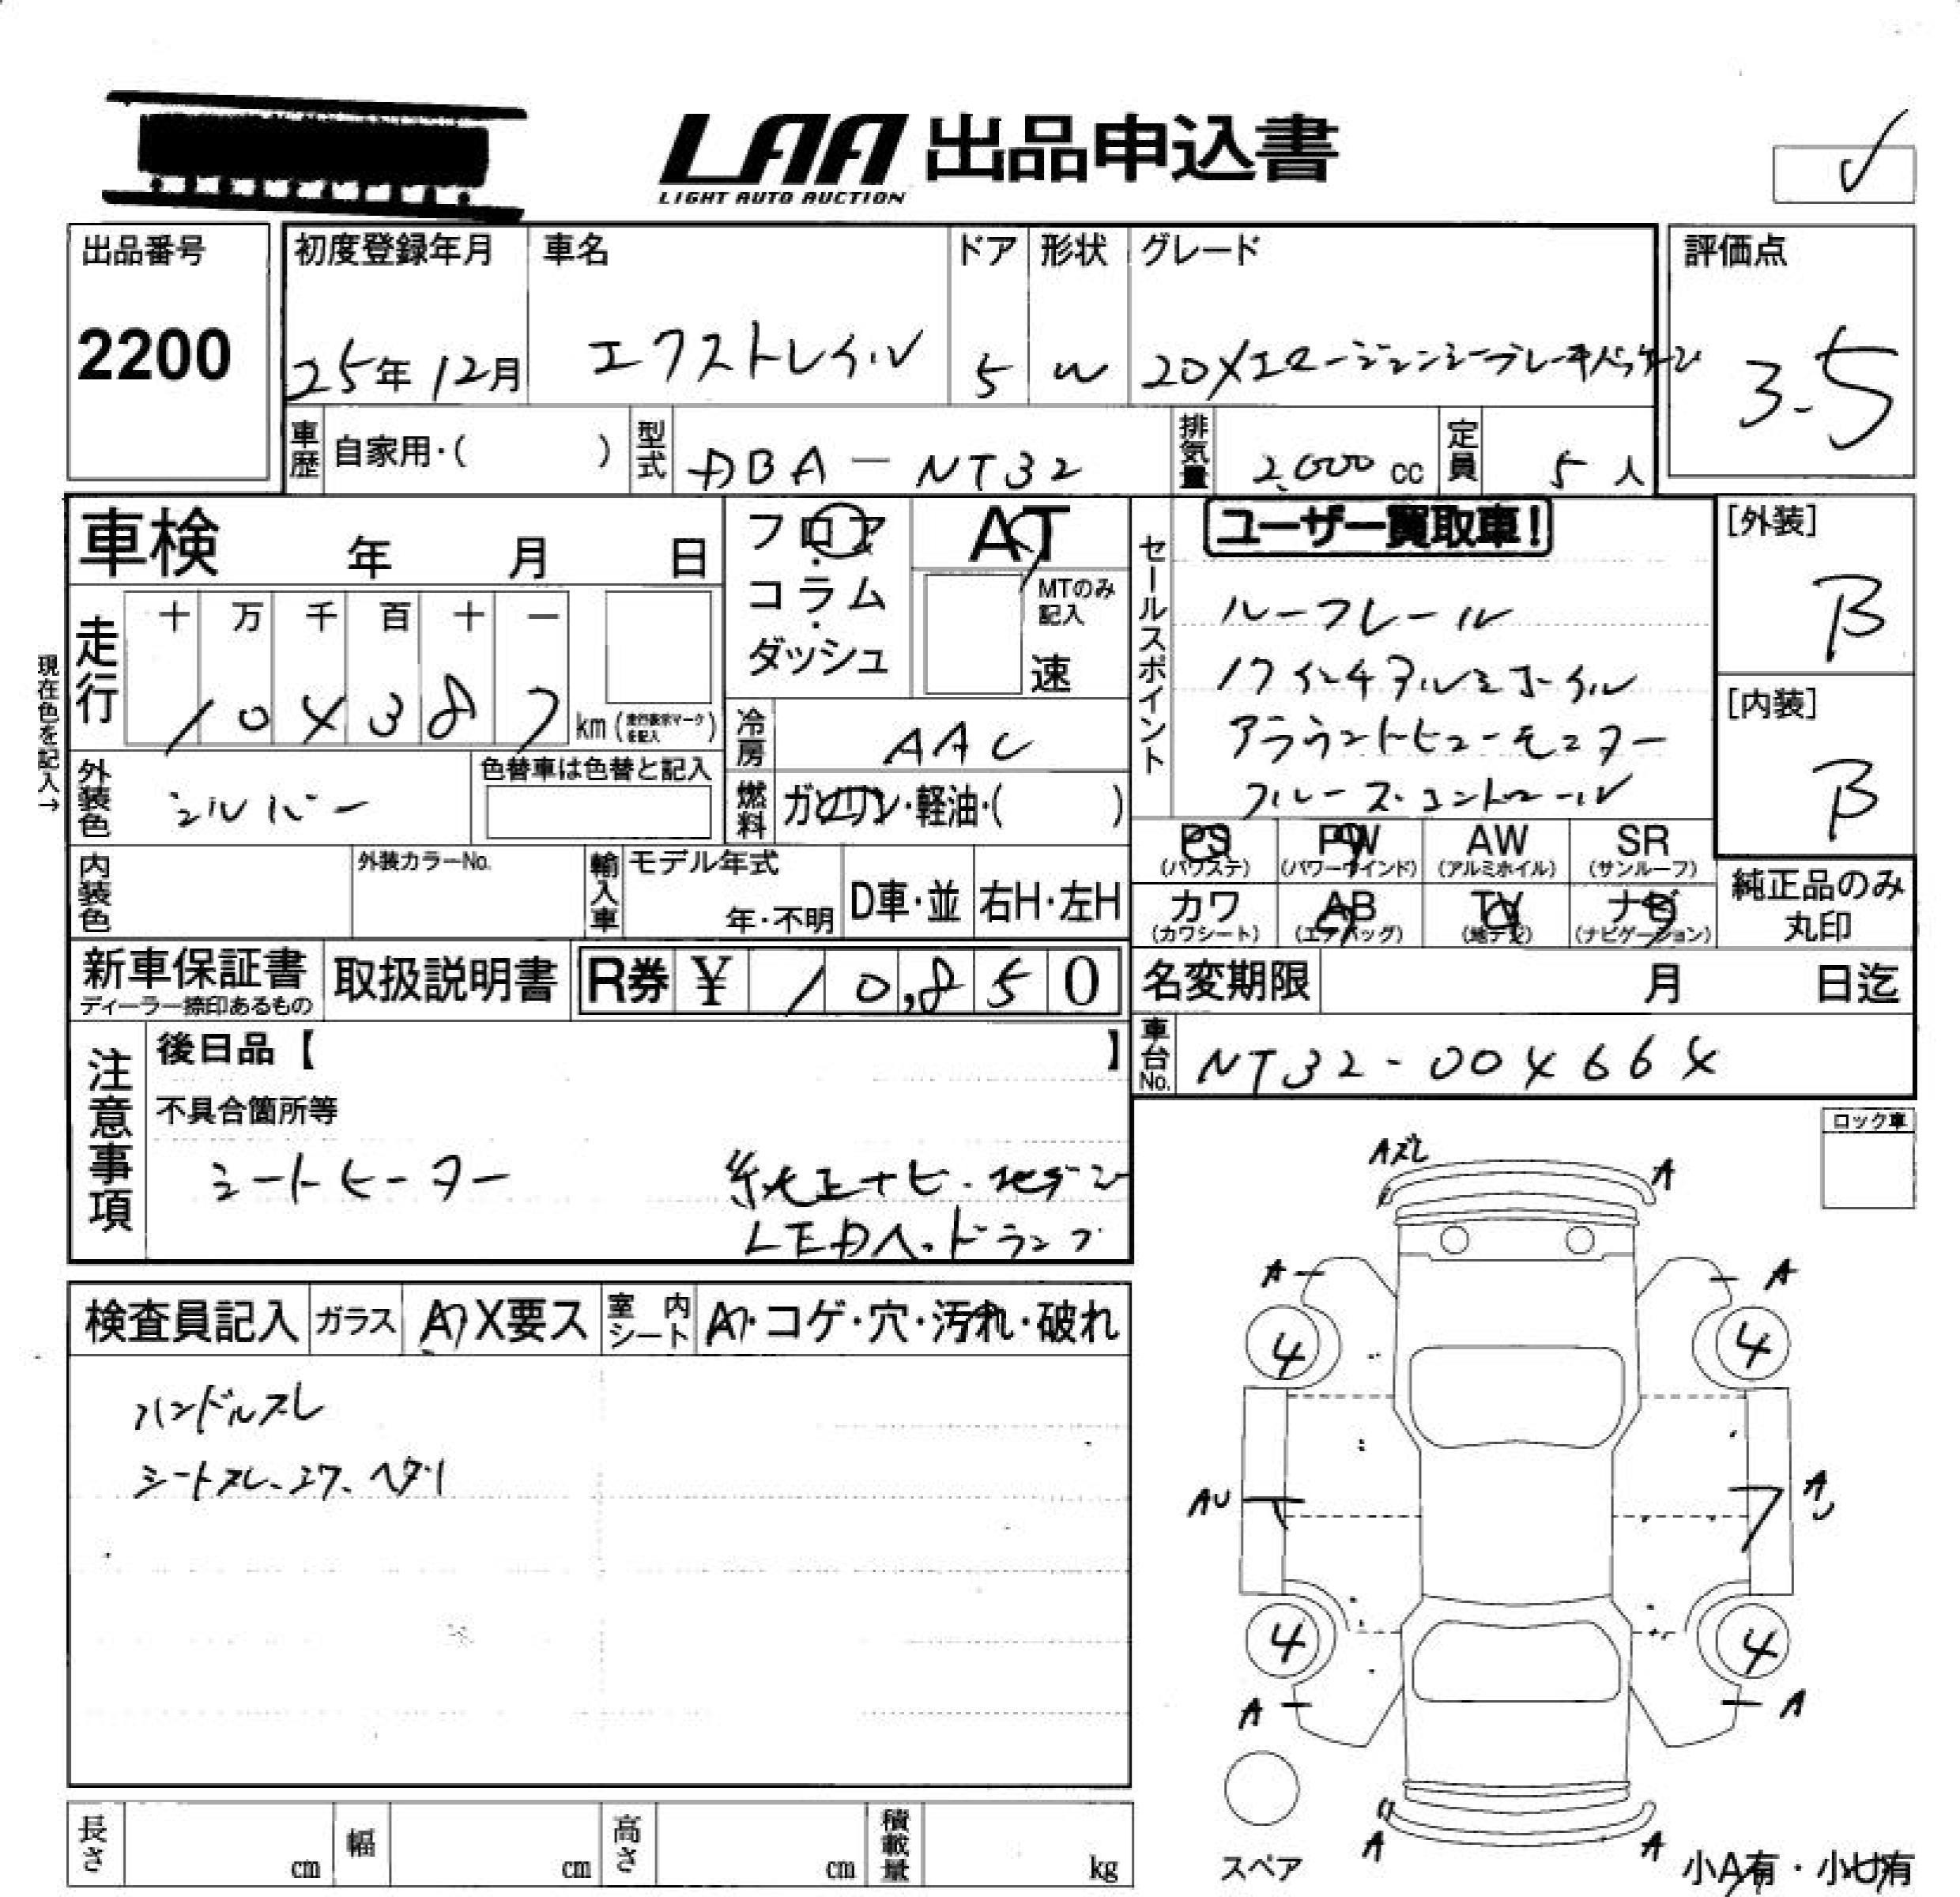 LAA 出品申込書
LIGHT AUTO AUCTION
出品番号
2200
初度登録年月
25年12月
車名
エクストレイル
ドア
5
形状
W
グレード
20Xエマージェンシーブレーキパッケージ
評価点
3.5
車歴
自家用・( )
型式
DBA-NT32
排気量
2,000 cc
定員
5人
車検 年 月 日
フロア
・
コラム
・
ダッシュ
AT
MTのみ記入
速
セールスポイント
ユーザー買取車!
ルーフレール
17インチアルミホイル
アラウンドビューモニター
クルーズコントロール
[外装]
B
[内装]
B
現在色を記入→
走行
十 万 千 百 十 一
104387 km (走行表示マークを記入)
冷房
AAC
外装色
シルバー
色替車は色替と記入
燃料
ガソリン・軽油・( )
PS (パワステ)
PW (パワーウインド)
AW (アルミホイル)
SR (サンルーフ)
カワ (カワシート)
AB (エアバッグ)
TV (地デジ)
ナビ (ナビゲーション)
純正品のみ丸印
内装色
外装カラーNo.
輸入車
モデル年式
年・不明
D車・並
右H・左H
新車保証書
ディーラー捺印あるもの
取扱説明書
R券 ¥ 10,850
名変期限 月 日迄
車台No.
NT32-004664
注意事項
後日品【 】
不具合箇所等
シートヒーター 純正ナビ・地デジ
LEDヘッドランプ
ロック車
検査員記入
ガラス
A X要ス
室内シート
A・コゲ・穴・汚れ・破れ
ハンドルスレ
シートスレ、コワ、ヘタリ
Aズレ
A
A
A
4
4
AU
AU
4
4
A
A
A
A
スペア
小A有・小U有
長さ cm
幅 cm
高さ cm
積載量 kg